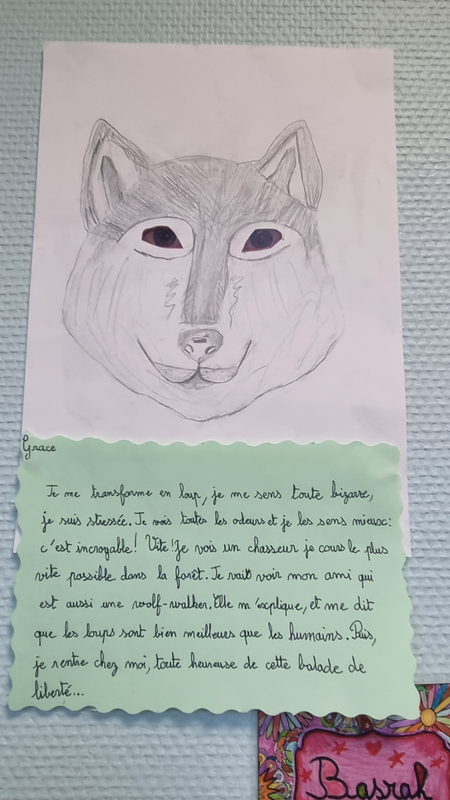 Grace
Je me transforme en loup, je me sens toute bizarre,
je suis stressée. Je vois toutes les odeurs et je les sens mieux:
c'est incroyable! Vite! je vois un chasseur je cours le plus
vite possible dans la forêt. Je vais voir mon ami qui
est aussi une wolf-walker. Elle m'explique, et me dit
que les loups sont bien meilleues que les humains. Puis,
je rentre chez moi, toute heureuse de cette balade de
liberté...
Basrah